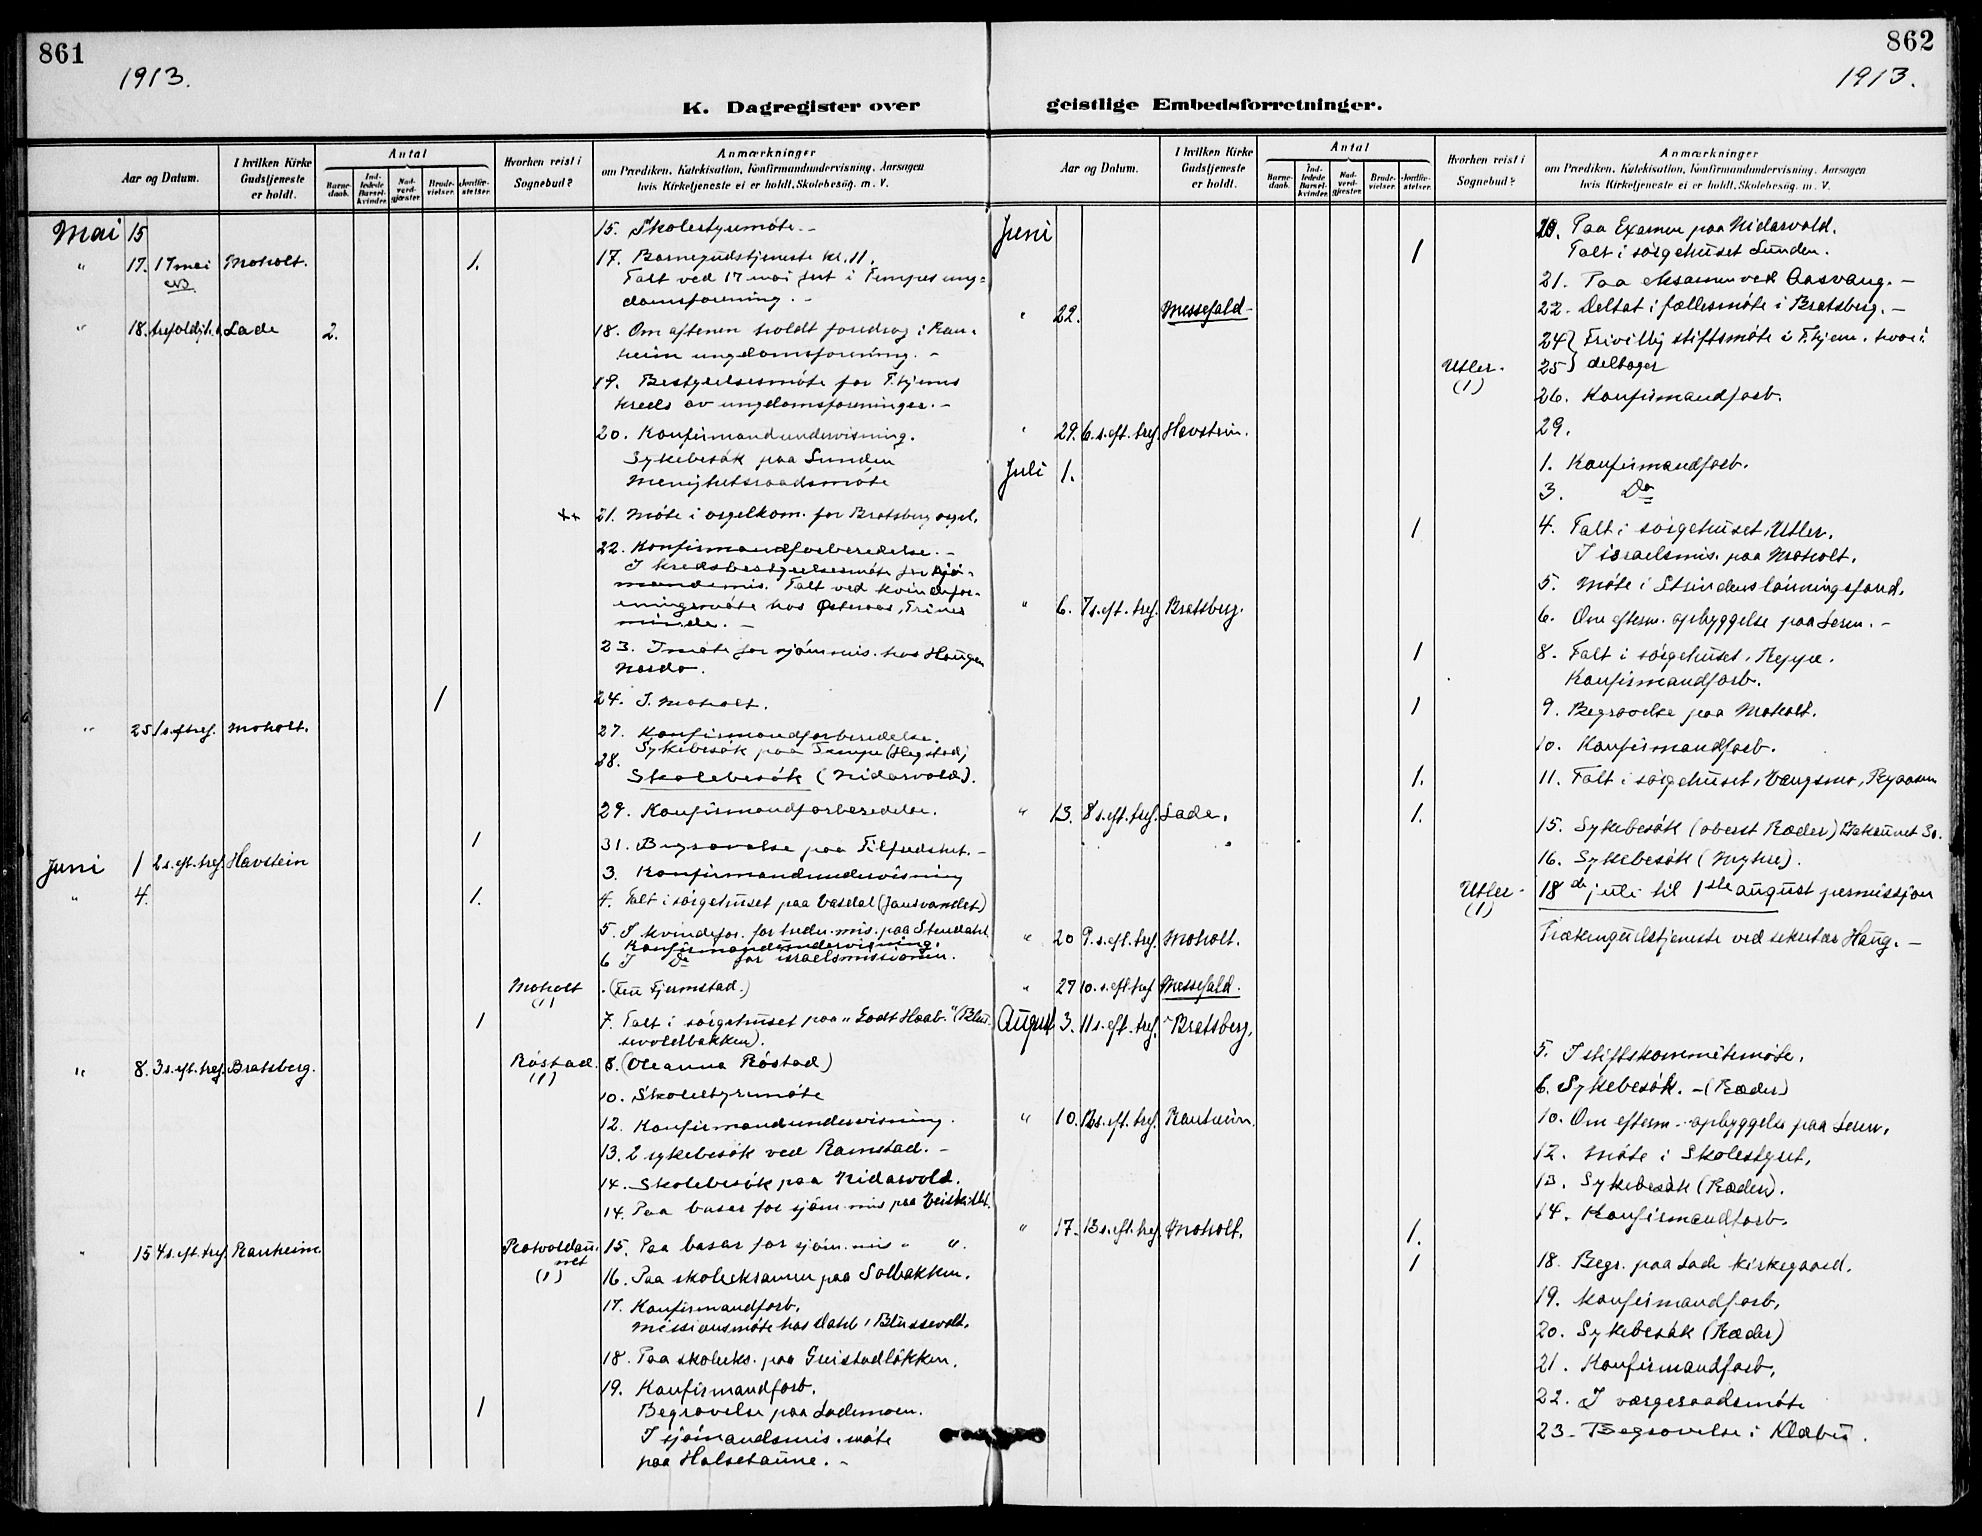 861
1913.
K. Dagregister over
Aar og Datum.
I hvilken Kirke Gudstjeneste er holdt.
Antal
Barne-daab.
Ind-ledede Barsel-kvinder.
Nad-verd-gjester.
Brude-vielser.
Jordfæ-stelser.
Hvorhen reist i Sognebud?
Anmærkninger
om Prædiken, Katekisation, Konfirmandundervisning, Aarsagen
hvis Kirketjeneste ei er holdt, Skolebesøg. m. V.
Mai 15 15. Skolestyremöte. -
" 17. 17 mai Moholt. 1. 17. Barnegudstjeneste kl. 11.
Talt ved 17 mai fest i Tempes ung=
domsforening. -
" 18. Lade 2. 18. Om aftenen holdt foredrag i Ran-
heim ungdomsforening. -
19. Bestyrelsesmöte for T.hjems
kreds av ungdomsforeninger. -
20. Konfirmandundervisning.
Sykebesök paa Sunden
Menighetsraadsmöte
21. Möte i orgelkom. for Bratsberg orgel.
22. Konfirmandforberedelse. -
I kredsbestyrelsesmöte for sjö-
mandsmis. Talt ved kvindefor-
eningsmöte hos Österaas, Trines
minde. -
23. I möte for sjöm.mis. hos Haugen
Nardo.
1 24. I. Moholt.
" 25 1 s. ef tref. Moholt. 27. Konfirmandforberedelse.
Sykebesök paa Tempe (Hegstad)
28.
Skolebesök (Nidarvold).
29. Konfirmandforberedelse.
1 31. Begravelse paa Tilfredshet. -
Juni 1 2 s. eft. tref. Havstein 3. Konfirmandundervisning
" 4. 1. 4. Talt i sörgehuset paa Vasdal (Jonsvandet)
5. I kvindefor. for indr. mis. paa Stendahl
Konfirmandundervisning.
6 I Do for israelsmissionen.
Moholt (1) (Fru Fjermstad.)
1 7. Talt i sörgehuset paa "Godt Haab." (Blus-
sevoldbakken).
" 8. 3 s. eft. tref. Bratsberg. Röstad. (1) 8. (Oleanna Röstad)
10. Skolestyremöte
12. Konfirmandundervisning.
13. 2 sykebesök ved Ramstad. -
14. Skolebesök paa Nidarvold.
14. Paa basar for sjöm. mis paa
" 15 4 s. eft. tref. Ranheim (1) 15. Paa basar for sjöm. mis " "
16. Paa skoleeksamen paa Solbakken.
17. Konfirmandforb.
Missionsmöte hos Dahl, Blussevold.
18. Paa skoleeks. paa
19. Konfirmandforb.
1 Begravelse paa Lademoen.
I sjömandsmis. möte
paa Halsetaune. -
862
1913.
geistlige Embedsforretninger.
Aar og Datum.
I hvilken Kirke Gudstjeneste er holdt.
Antal
Barne-daab.
Ind-ledede Barsel-kvinder.
Nad-verd-gjester.
Brude-vielser.
Jordfæ-stelser.
Hvorhen reist i Sognebud?
Anmærkninger
om Prædiken, Katekisation, Konfirmandundervisning, Aarsagen
hvis Kirketjeneste ei er holdt, Skolebesög m. V.
Juni 20. Paa Examen paa Nidarvold.
1 Talt i sörgehuset Sunden.
21. Paa eksamen ved Aasvang. -
" 22. Messefald- 22. Deltat i fællesmöte i Bratsberg. -
24 } Frivillig stiftsmöte i T.hjem, hvor i
Utler. (1) 25 } deltager
26. Konfirmandforb.
" 29. 6. s. eft. tref. Havstein. 29.
Juli 1. 1. Konfirmandforb.
3. Do
1 4. Talt i sörgehuset, Utler.
I israelsmis. paa Moholt.
5. Möte i Strindens lönningsfond.
" 6. 7 s. eft. tref. Bratsberg. 6. Om efterm. opbyggelse paa Leren. -
1 8. Talt i sörgehuset, Reppe.
Konfirmandforb.
1 9. Begravelse paa Moholt.
10. Konfirmandforb.
1. 11. Talt i sörgehuset, Vangsmo,
" 13. 8 s. eft. tref. Lade. 1. 15. Sykebesök (oberst Ræder)
16. Sykebesök (Myhre).
Utler (1) 18de juli til 1ste august permissjon
" 20 9. s. eft. tref. Moholt. gudstjeneste ved sekretær Haug. -
" 27 10. s. eft. tref Messefald.
August 3. 11 s. eft. tref. Bratsberg.
5. I stiftskommitemöte.
6. Sykebesök. - (Ræder)
" 10. 12 s. eft. tref. Ranheim. 10. Om efterm. opbyggelse paa Leren.
12. Möte i Skolestyret.
13. Sykebesök (Ræder).
14. Konfirmandforb.
" 17. 13 s. eft. tref. Moholt. 1.
1 18. Begr. paa Lade kirkegaard.
19. Konfirmandforb.
20. Sykebesök (Ræder)
21. Konfirmandforb.
22. I værgeraadsmöte
23. Begravelse i Klæbu.